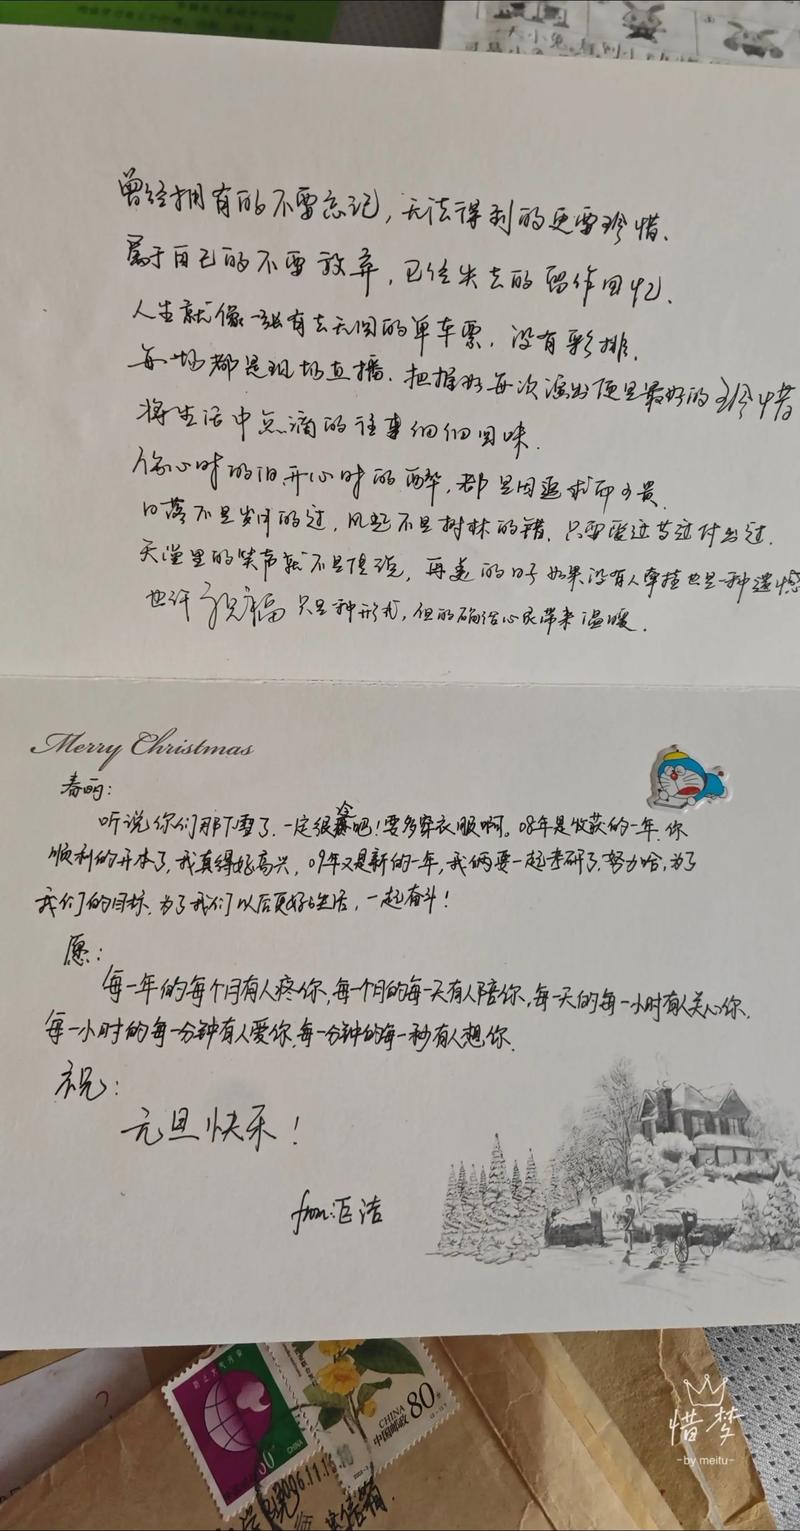 曾经拥有的不要忘记，无法得到的更要珍惜、
属于自己的不要放弃，已经失去的留作回忆、
人生就像一张有去无回的单车票，没有彩排、
每一场都是现场直播、把握好每次演出便是最好的珍惜
将生活中点滴的往事细细回味、
伤心时的泪、开心时的醉，都是因追求而可贵、
日落不是岁月的过，风起不是树林的错、只要爱过等过付出过、
天堂里的笑声就不是传说，再美的日子如果没有人牵挂也是一种遗憾
也许祝福只是种形式，但的确给心灵带来温暖、
Merry Christmas
春丽：
听说你们那下雪了、一定很冷吧！要多穿衣服啊。08年是收获的一年、你
顺利的开本了，我真得好高兴，09年又是新的一年，我俩要一起考研了、努力哈，为了
我们的目标、为了我们以后更好的生活，一起奋斗！
愿：
每一年的每个月有人疼你，每一个月的每一天有人陪你，每一天的每一小时有人关心你、
每一小时的每一分钟有人爱你、每一分钟的每一秒有人想你、
祝：
元旦快乐！
from：
洁
80
CHINA
中国邮政
CHINA
惜梦
-by meitu-